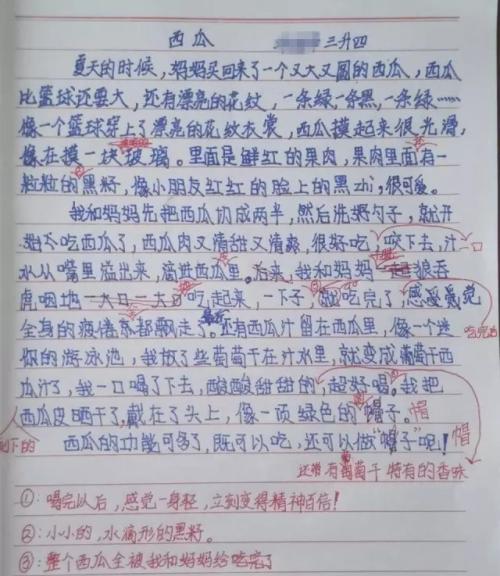 西瓜 三升四
夏天的时候，妈妈买回来了一个又大又圆的西瓜，西瓜
比篮球还要大，还有漂亮的花纹，一条绿一条黑，一条绿……
像一个篮球穿上了漂亮的花纹衣裳，西瓜摸起来很光滑，
像在摸一块玻璃。里面是鲜红的果肉，果肉里面有一
粒粒的黑籽，像小朋友红红的脸上的黑zhì，很可爱。
我和妈妈先把西瓜切成两半，然后洗好勺子，就开
始吃西瓜了，西瓜肉又清甜又清爽，很好吃，咬下去，汁 一口
水从嘴里溢出来，滴进西瓜里。后来，我和妈妈一起狼吞
虎咽地一大口一大口吃起来，一下子，就吃完了，感受感觉
全身的疲惫都飘走了。还有西瓜汁留在西瓜里，像一个迷 吃完后
你的游泳池，我放了些葡萄干在汁水里，就变成葡萄干西
瓜汁了，我一口喝了下去，酸酸甜甜的，超好喝。我把
西瓜皮晒干了，戴在了头上，像一顶绿色的帽子，帽
剩下的 西瓜的功能可多了，既可以吃，还可以做“帽子”呢！ 帽
还带有葡萄干特有的香味
①：喝完以后，感觉一身轻，立刻变得精神百倍！
②：小小的，水滴形的黑籽。
③：整个西瓜全被我和妈妈给吃完了